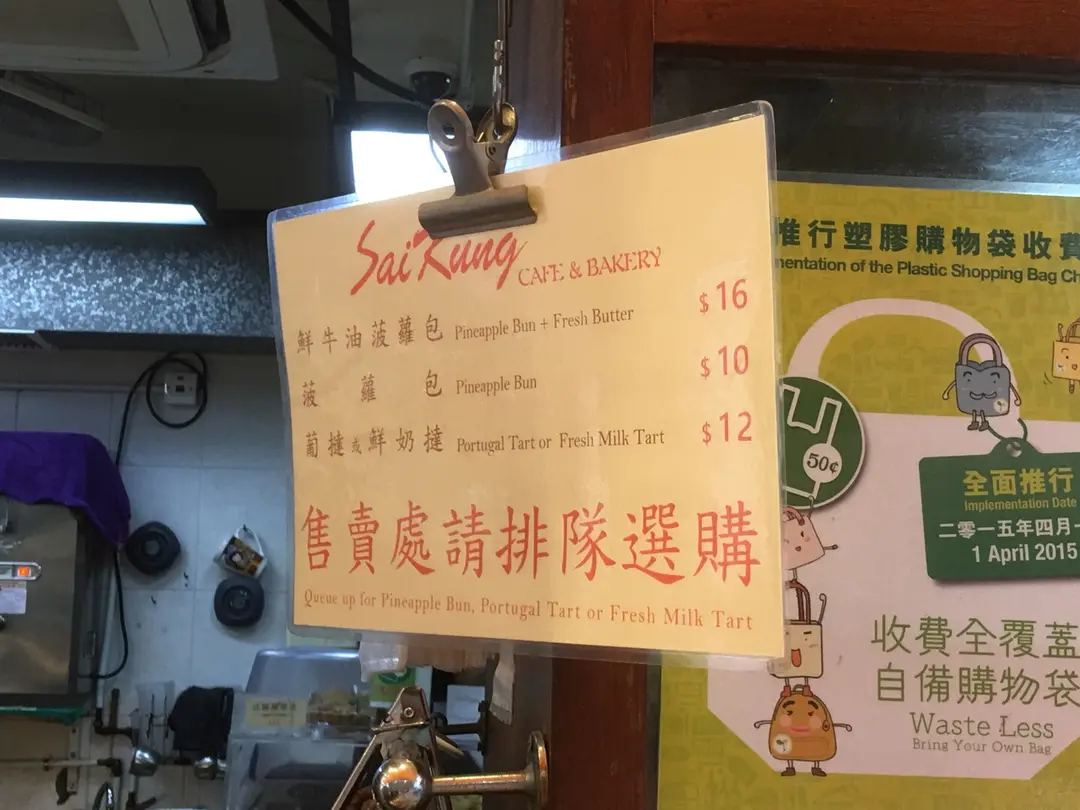 Sai Kung CAFE & BAKERY
鮮牛油菠蘿包 Pineapple Bun + Fresh Butter $16
菠蘿包 Pineapple Bun $10
葡撻或鮮奶撻 Portugal Tart or Fresh Milk Tart $12
售賣處請排隊選購
Queue up for Pineapple Bun, Portugal Tart or Fresh Milk Tart
推行塑膠購物袋收費
of the Plastic Shopping Bag
50¢
全面推行
Implementation Date
二零一五年四月
1 April 2015
收費全覆蓋
自備購物袋
Waste Less
Bring Your Own Bag